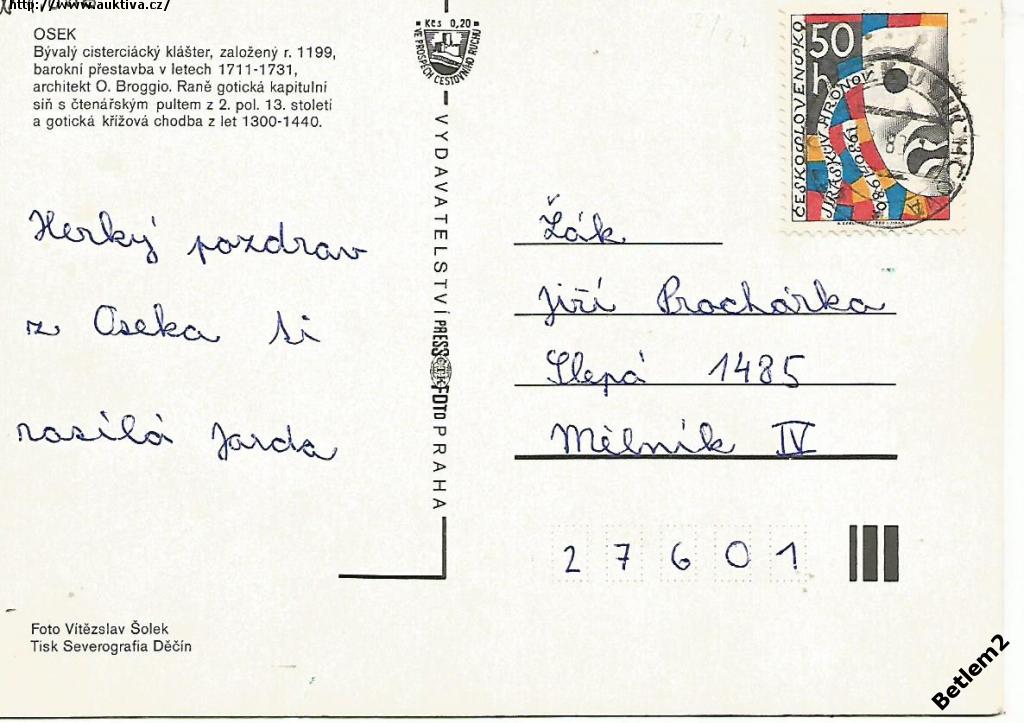 http://www.auktiva.cz/
OSEK
Bývalý cisterciácký klášter, založený r. 1199,
barokní přestavba v letech 1711-1731,
architekt O. Broggio. Raně gotická kapitulní
síň s čtenářským pultem z 2. pol. 13. století
a gotická křížová chodba z let 1300-1440.
Herký pozdrav
z Oseka ti
nasílá Jarda
Foto Vítězslav Šolek
Tisk Severografia Děčín
Kčs 0,20
VE PROSPĚCH CESTOVNÍHO RUCHU
VYDAVATELSTVÍ PRESSFOTO PRAHA
ČTK
50 h
ČESKOSLOVENSKO
JIRÁSKŮV HRONOV
1930/1980
Žák
Jiří Procházka
Slepá 1485
Mělník IV
27601
Betlem2